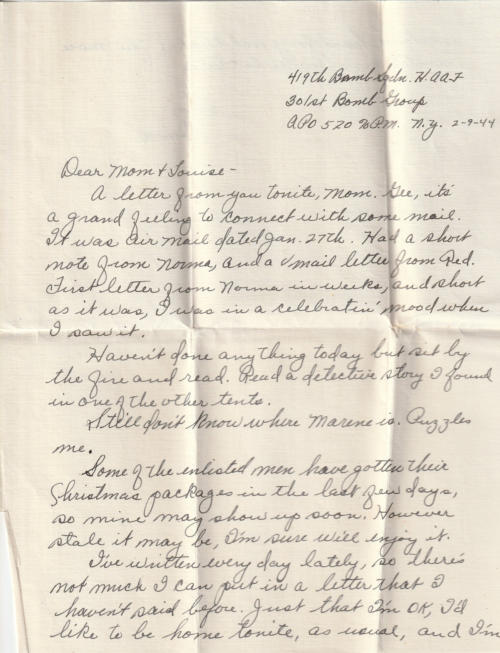 419th Bomb Sqdn. H. AAF
301st Bomb Group
APO 520 % P.M. N.Y. 2-9-44
Dear Mom & Louise-
A letter from you tonite, Mom. Gee, it's
a grand feeling to connect with some mail.
It was air mail dated Jan. 27th. Had a short
note from Norma, and a Vmail letter from Red.
First letter from Norma in weeks, and short
as it was, I was in a celebratin' mood when
I saw it.
Haven't done anything today but sit by
the fire and read. Read a detective story I found
in one of the other tents.
Still don't know where Marene is. Puzzles
me.
Some of the enlisted men have gotten their
Christmas packages in the last few days,
so mine may show up soon. However
stale it may be, I'm sure will enjoy it.
I've written every day lately, so there's
not much I can put in a letter that I
haven't said before. Just that I'm OK, I'd
like to be home tonite, as usual, and I'm